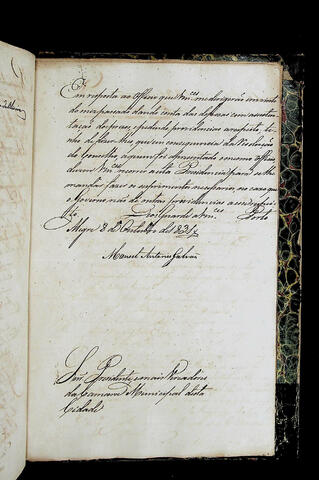 Em resposta ao Officio que Vm.ces me dirigirão em vinte
do mez passado dando conta das despezas com a susten-
tação dos prezos, e pedindo providencias a respeito, te-
nho de dizer-lhe que em consequencia da Resolução
do Conselho a quem foi apresentado o mesmo officio
devem Vm.ces recorrer a esta Presidencia para se lhe
mandar fazer os suprimentos necessarios, no caso que
o Governo não dê outras providencias a esse respei-
to. Deos Guarde a Vm.ces Porto
Alegre 8 de Outubro de 1831
Manoel Antonio Galvão
Snr. Presidente, e mais Vereadores
da Camara Municipal desta
Cidade